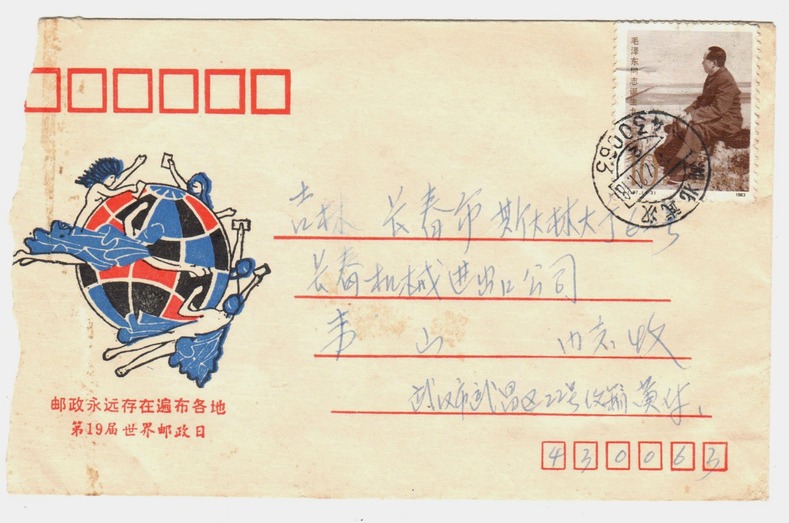 毛泽东同志诞生九
1983
430063
湖北武汉
吉林 长春市 斯大林大街
长春机械进出口公司
韦 山 内衣收
武汉市武昌区22号信箱黄
430063
邮政永远存在遍布各地
第19届世界邮政日